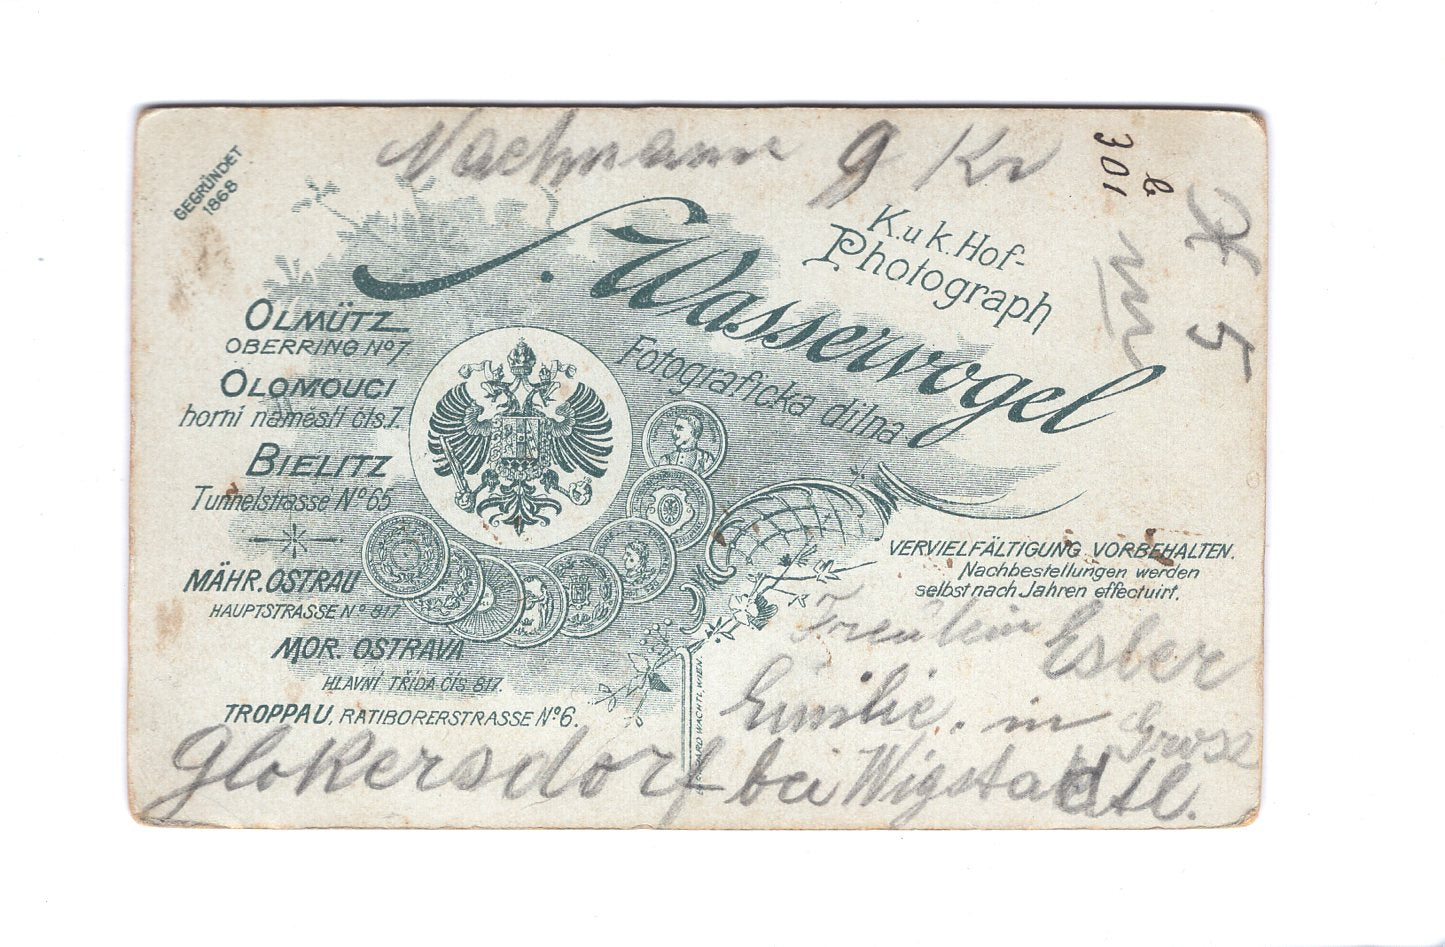 Nachmann 9 Kr
301
b
5
GEGRÜNDET
1868
S. Wasservogel
K. u k. Hof-
Photograph
Fotograficka dilna
OLMÜTZ
OBERRING No 7.
OLOMOUCI
horni náměsti čís. 7.
BIELITZ
Tunnelstrasse No 65
MÄHR. OSTRAU
HAUPTSTRASSE No 817
MOR. OSTRAVA
HLAVNÍ TŘÍDA ČÍS 817.
TROPPAU, RATIBORERSTRASSE No 6.
VERVIELFÄLTIGUNG VORBEHALTEN.
Nachbestellungen werden
selbst nach Jahren effectuirt.
BERNHARD WACHTL, WIEN.
Fräulein Esber
Emilie. in Grosz
Glokersdorf bei Wigstadtl.